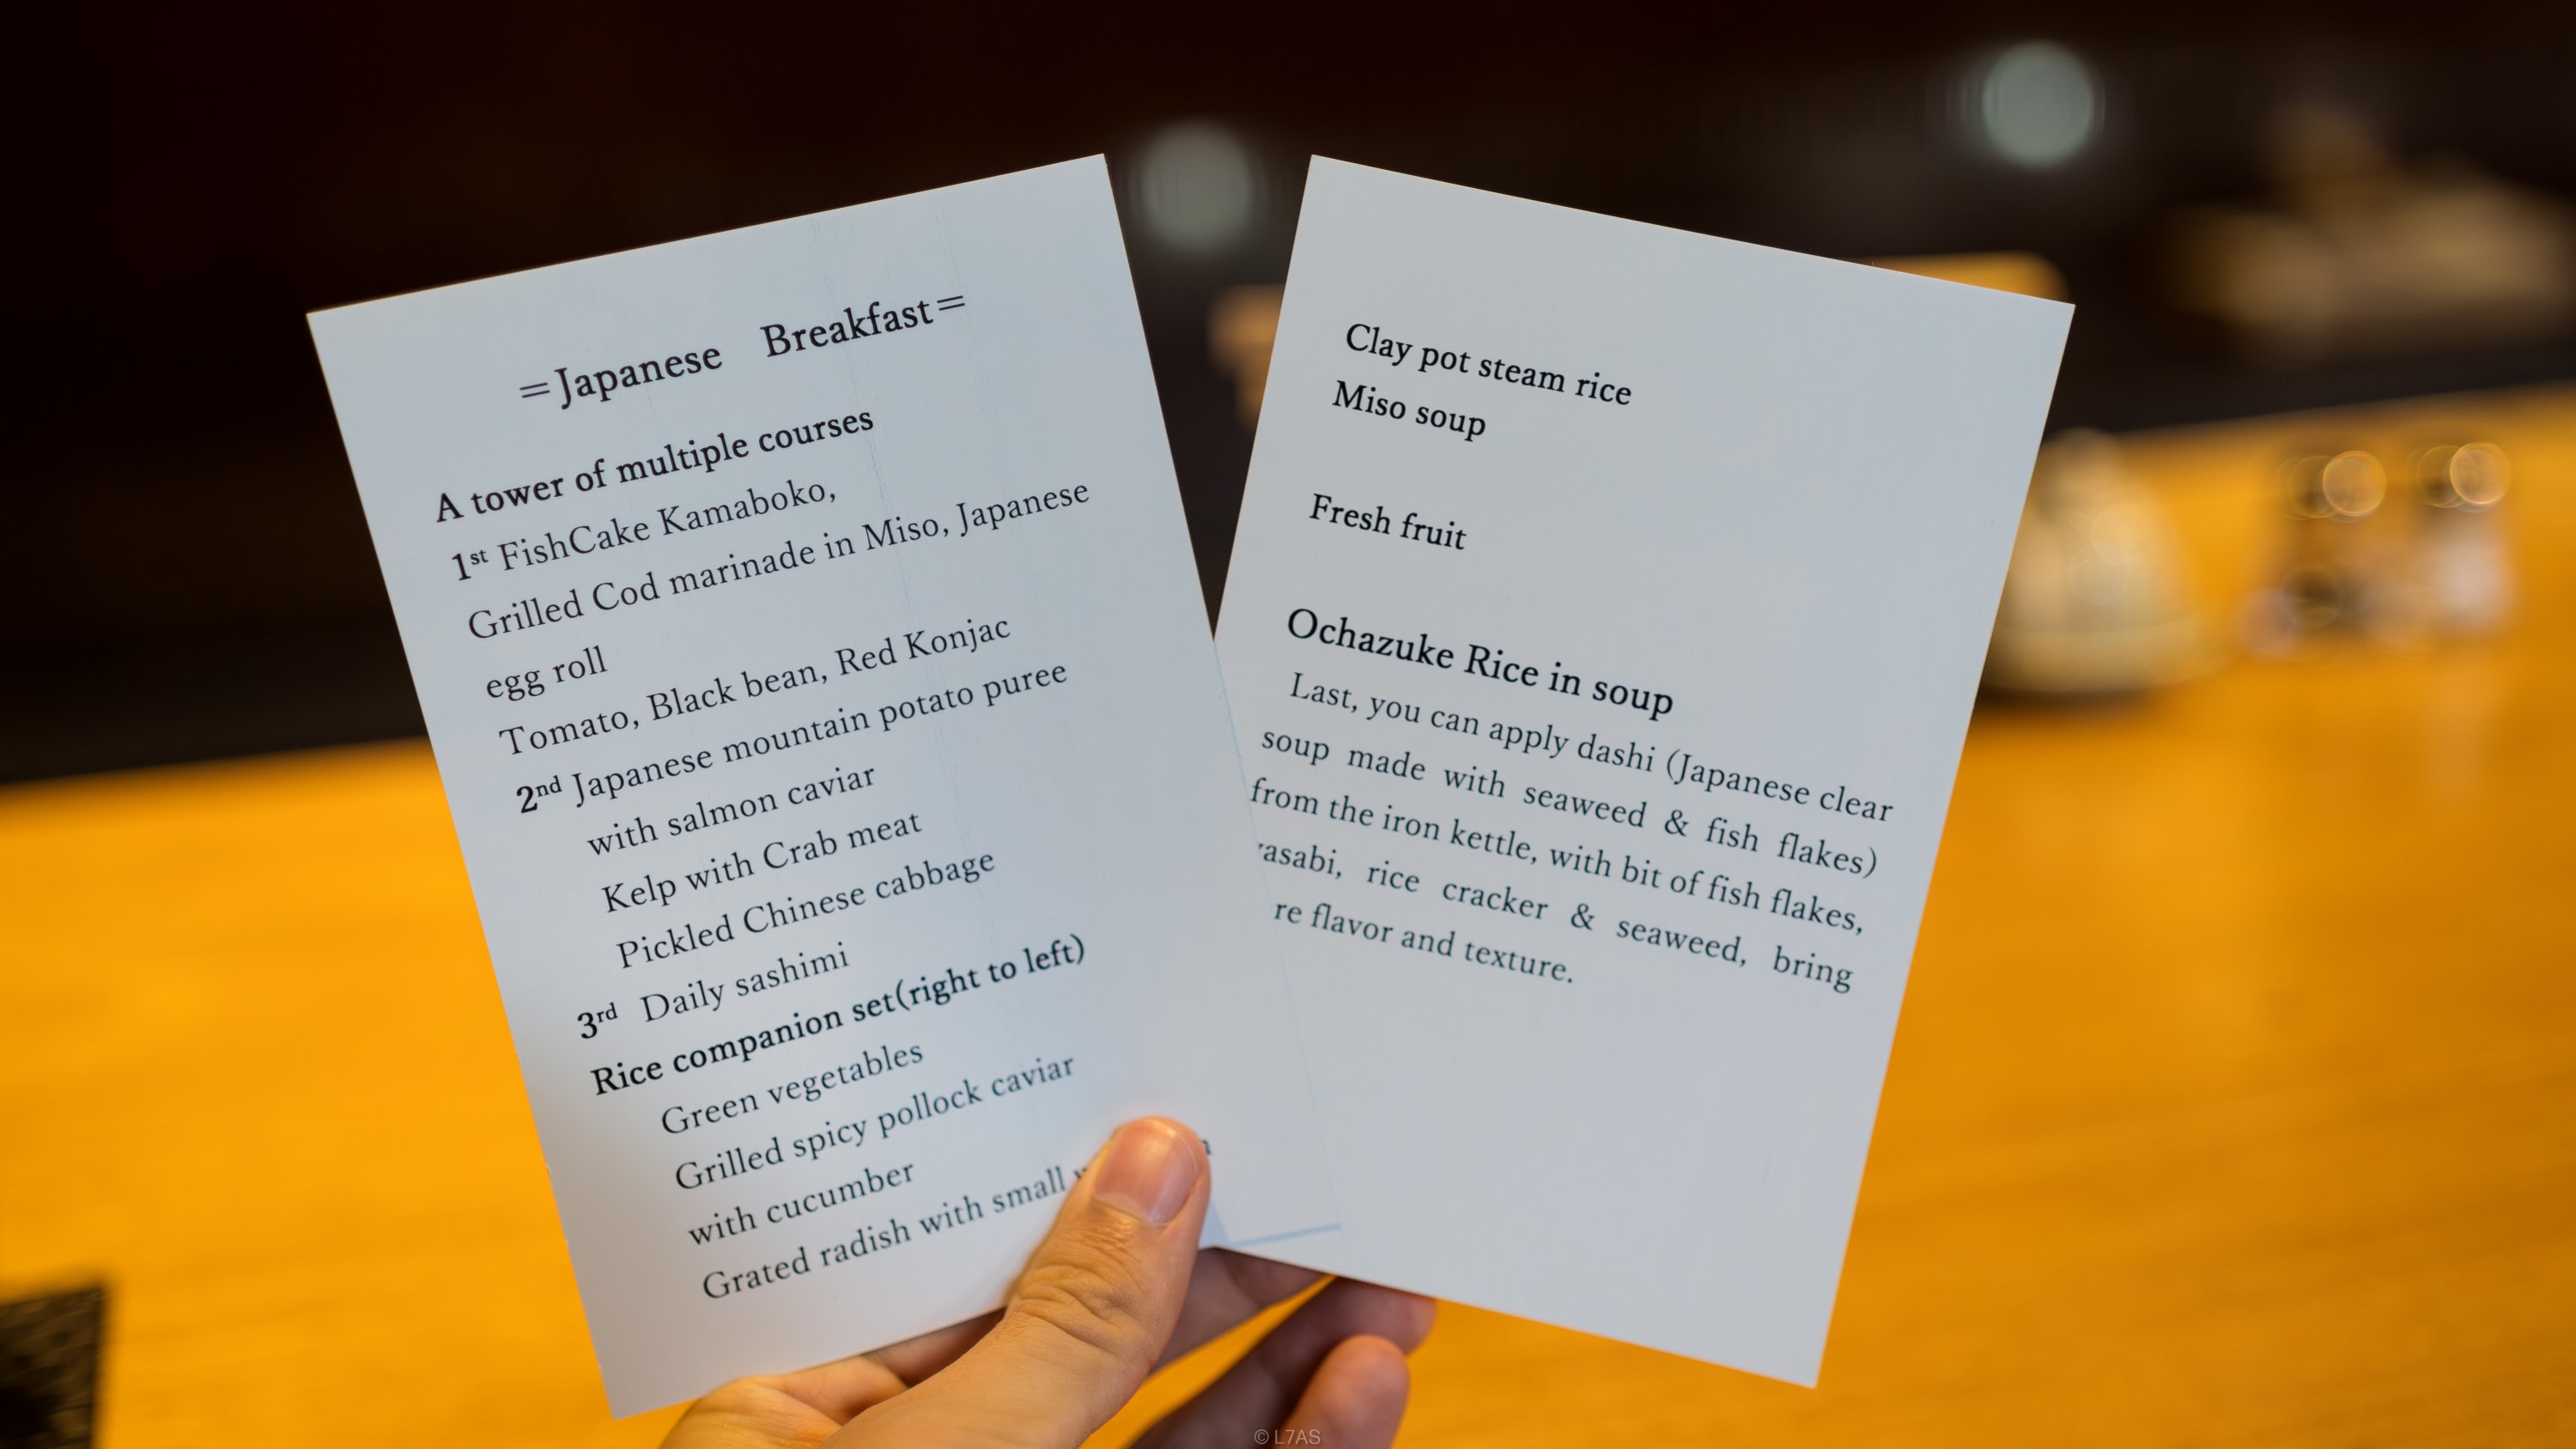 =Japanese Breakfast=
A tower of multiple courses
1st FishCake Kamaboko,
Grilled Cod marinade in Miso, Japanese
egg roll
Tomato, Black bean, Red Konjac
2nd Japanese mountain potato puree
with salmon caviar
Kelp with Crab meat
Pickled Chinese cabbage
3rd Daily sashimi
Rice companion set(right to left)
Green vegetables
Grilled spicy pollock caviar
with cucumber
Grated radish with small
Clay pot steam rice
Miso soup
Fresh fruit
Ochazuke Rice in soup
Last, you can apply dashi (Japanese clear
soup made with seaweed & fish flakes)
from the iron kettle, with bit of fish flakes,
asabi, rice cracker & seaweed, bring
re flavor and texture.
© L7AS